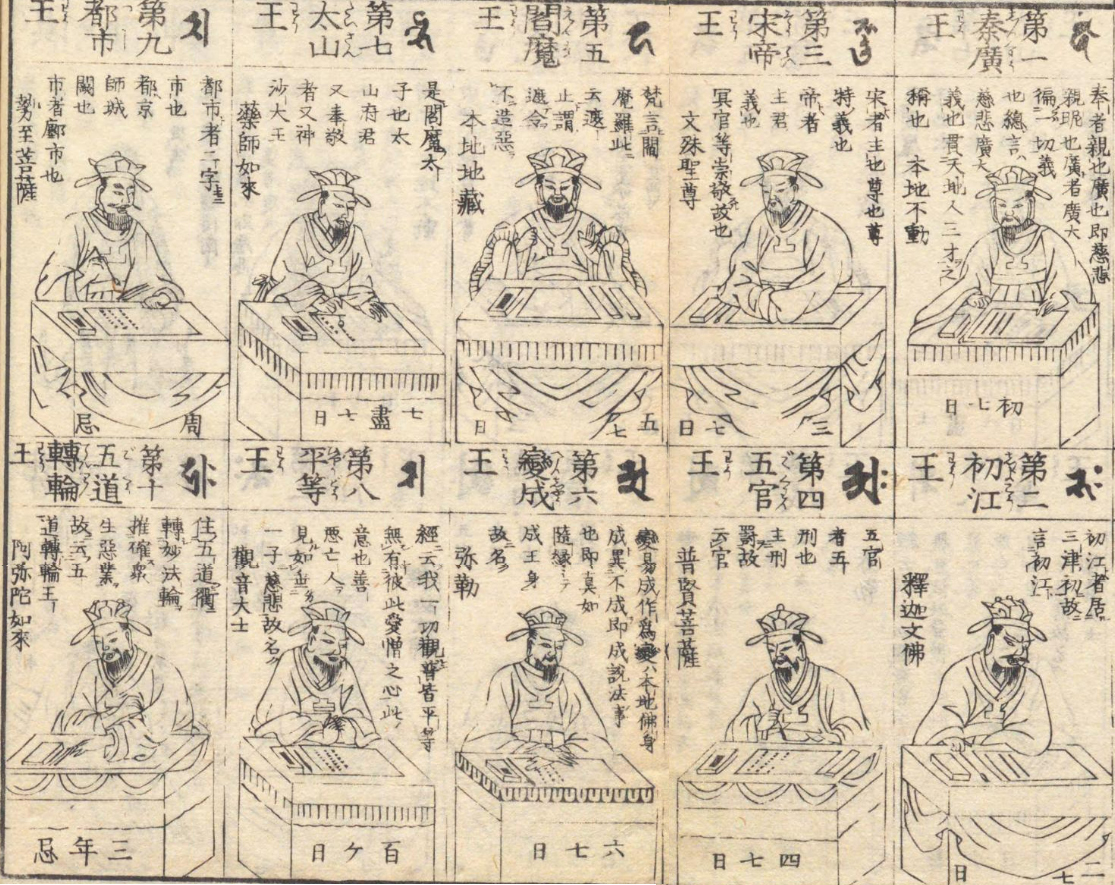 第一
秦廣
王
奉者親也廣也即慈悲
親昵也廣者廣大
徧一切義
也總言
慈悲廣大
義也貫天地人三才之
稱也 本地不動
初七日
第二
初江
王
初江者居
三津初故
言初江
釋迦文佛
二七日
第三
宋帝
王
宋者主也尊也尊
特義也
帝者
主君
義也
冥官等崇敬故也
文殊聖尊
三七日
第四
五官
王
五官
者五
刑也
主刑
罸故
云官
普賢菩薩
四七日
第五
閻魔
王
梵言閻
魔羅此
云遮
止謂
遮令
不造惡
本地地藏
五七日
第六
變成
王
變易成作為變本地佛身
成異不成即成説法事
也即真如
隨縁
成王身
故名
弥勒
六七日
第七
太山
王
是閻魔太
子也太
山府君
又奉敬
者又神
沙大王
藥師如來
七七日
盡
第八
平等
王
經云我一切觀音皆平等
無有彼此愛憎之心此
意也善
惡亡人
見如
一子慈悲故名
觀音大士
百ケ日
第九
都市
王
都市者二字
市也
都京
師城
闕也
市者鄽市也
勢力至菩薩
周忌
第十
五道
轉輪
王
住五道衢
轉妙法輪
摧碓衆
生惡業
故云五
道轉輪王
阿弥陀如來
三年忌